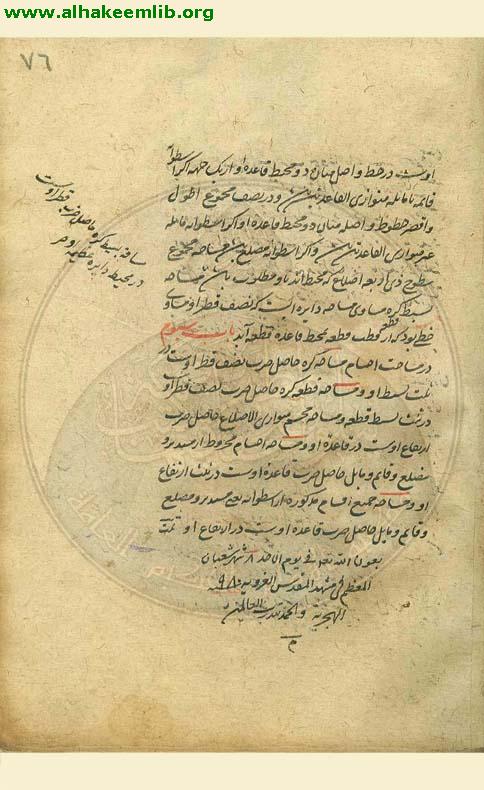 www.alhakeemlib.org
٧٦
اوست در خط واصل میان دو محیط قاعده او از یک جهه اگر اسطوانه
قائمه یا مائله متوازی القاعدتین باشد و در نصف مجموع اطول
و اقصر خطوط واصله میان دو محیط قاعده او اگر اسطوانه مائله
غیر متوازی القاعدتین باشد و اگر اسطوانه مضلع باشد مساحه مجموع
سطوح ذی اربعه اضلاع که محیط اند باو مطلوب باشد مساحه
بسیط کره مساوی مساحه دایره است که نصف قطر او مساوی
خط بود که از قطب قطعه بمحیط قاعده قطعه آید باب سیوم
در مساحت اجسام مساحه کره حاصل ضرب نصف قطر اوست در
ثلث بسیط او و مساحه قطعه کره حاصل ضرب نصف قطر او
در ثلث بسیط قطعه و مساحه مجسم متوازی الاضلاع حاصل ضرب
ارتفاع اوست در قاعده او و مساحه اجسام مخروط از مستدیر و
مضلع و قائم و مایل حاصل ضرب قاعده اوست در ثلث ارتفاع
او و مساحه جمیع اقسام مذکوره از اسطوانه یعنی مستدیر و مضلع
و قائم و مایل حاصل ضرب قاعده اوست در ارتفاع او تمت
بعون الله تعالی فی یوم الاحد ٨ شهر شعبان
المعظم فی مشهد المقدس الغرویه ٩٨٠
الهجریة والحمد لله رب العالمین
م
مساحه بسیط کره حاصل ضرب قطر اوست
در محیط دایره عظیمه